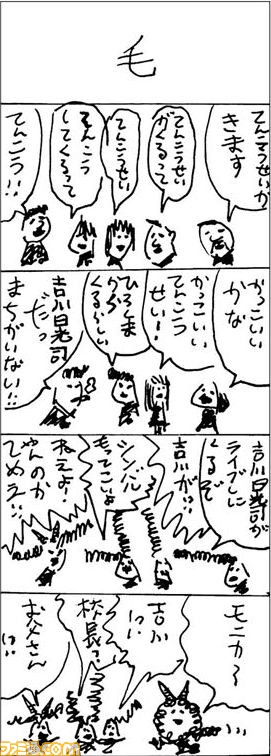 毛
てんこうせいが
きます
てんこうせい
がくるって
てんこうせい
てんこう
してくるって
てんこう!!
かっこいい
かな
かっこいい
てんこう
せい!
ひろしま
から
くるらしい
吉川晃司
だっ
まちがいない!!
吉川晃司が
ライブしに
くるぞ
吉川が!!
シンバル
もってこいよ
ねえよ!
やんのか
てめえ!!
モニカ〜
吉川…
校長っ…
お父さん…
ファミ通.com